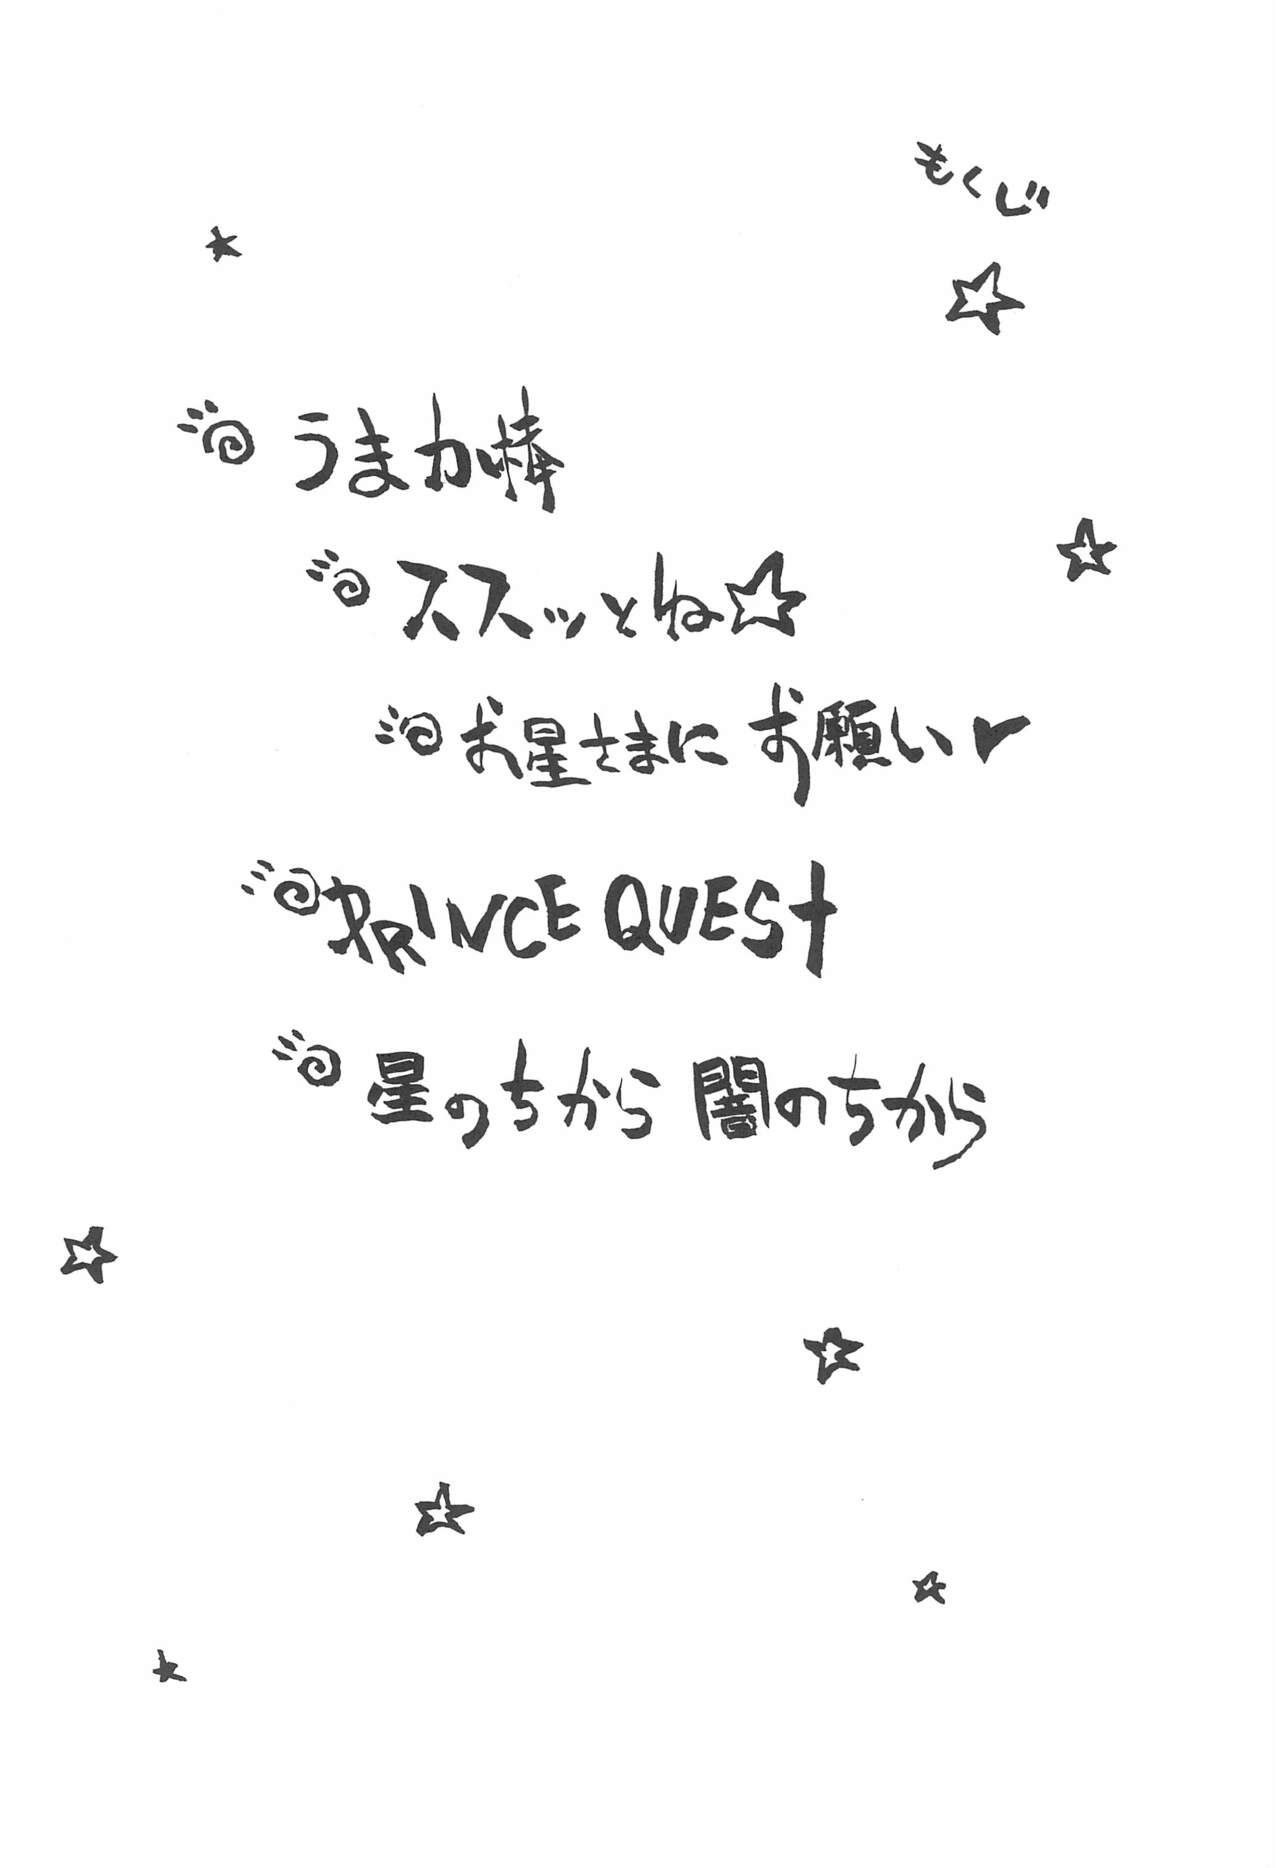 もくじ
うまか棒
ススッとね☆
お星さまにお願い♥
PRINCE QUEST
星のちから 闇のちから